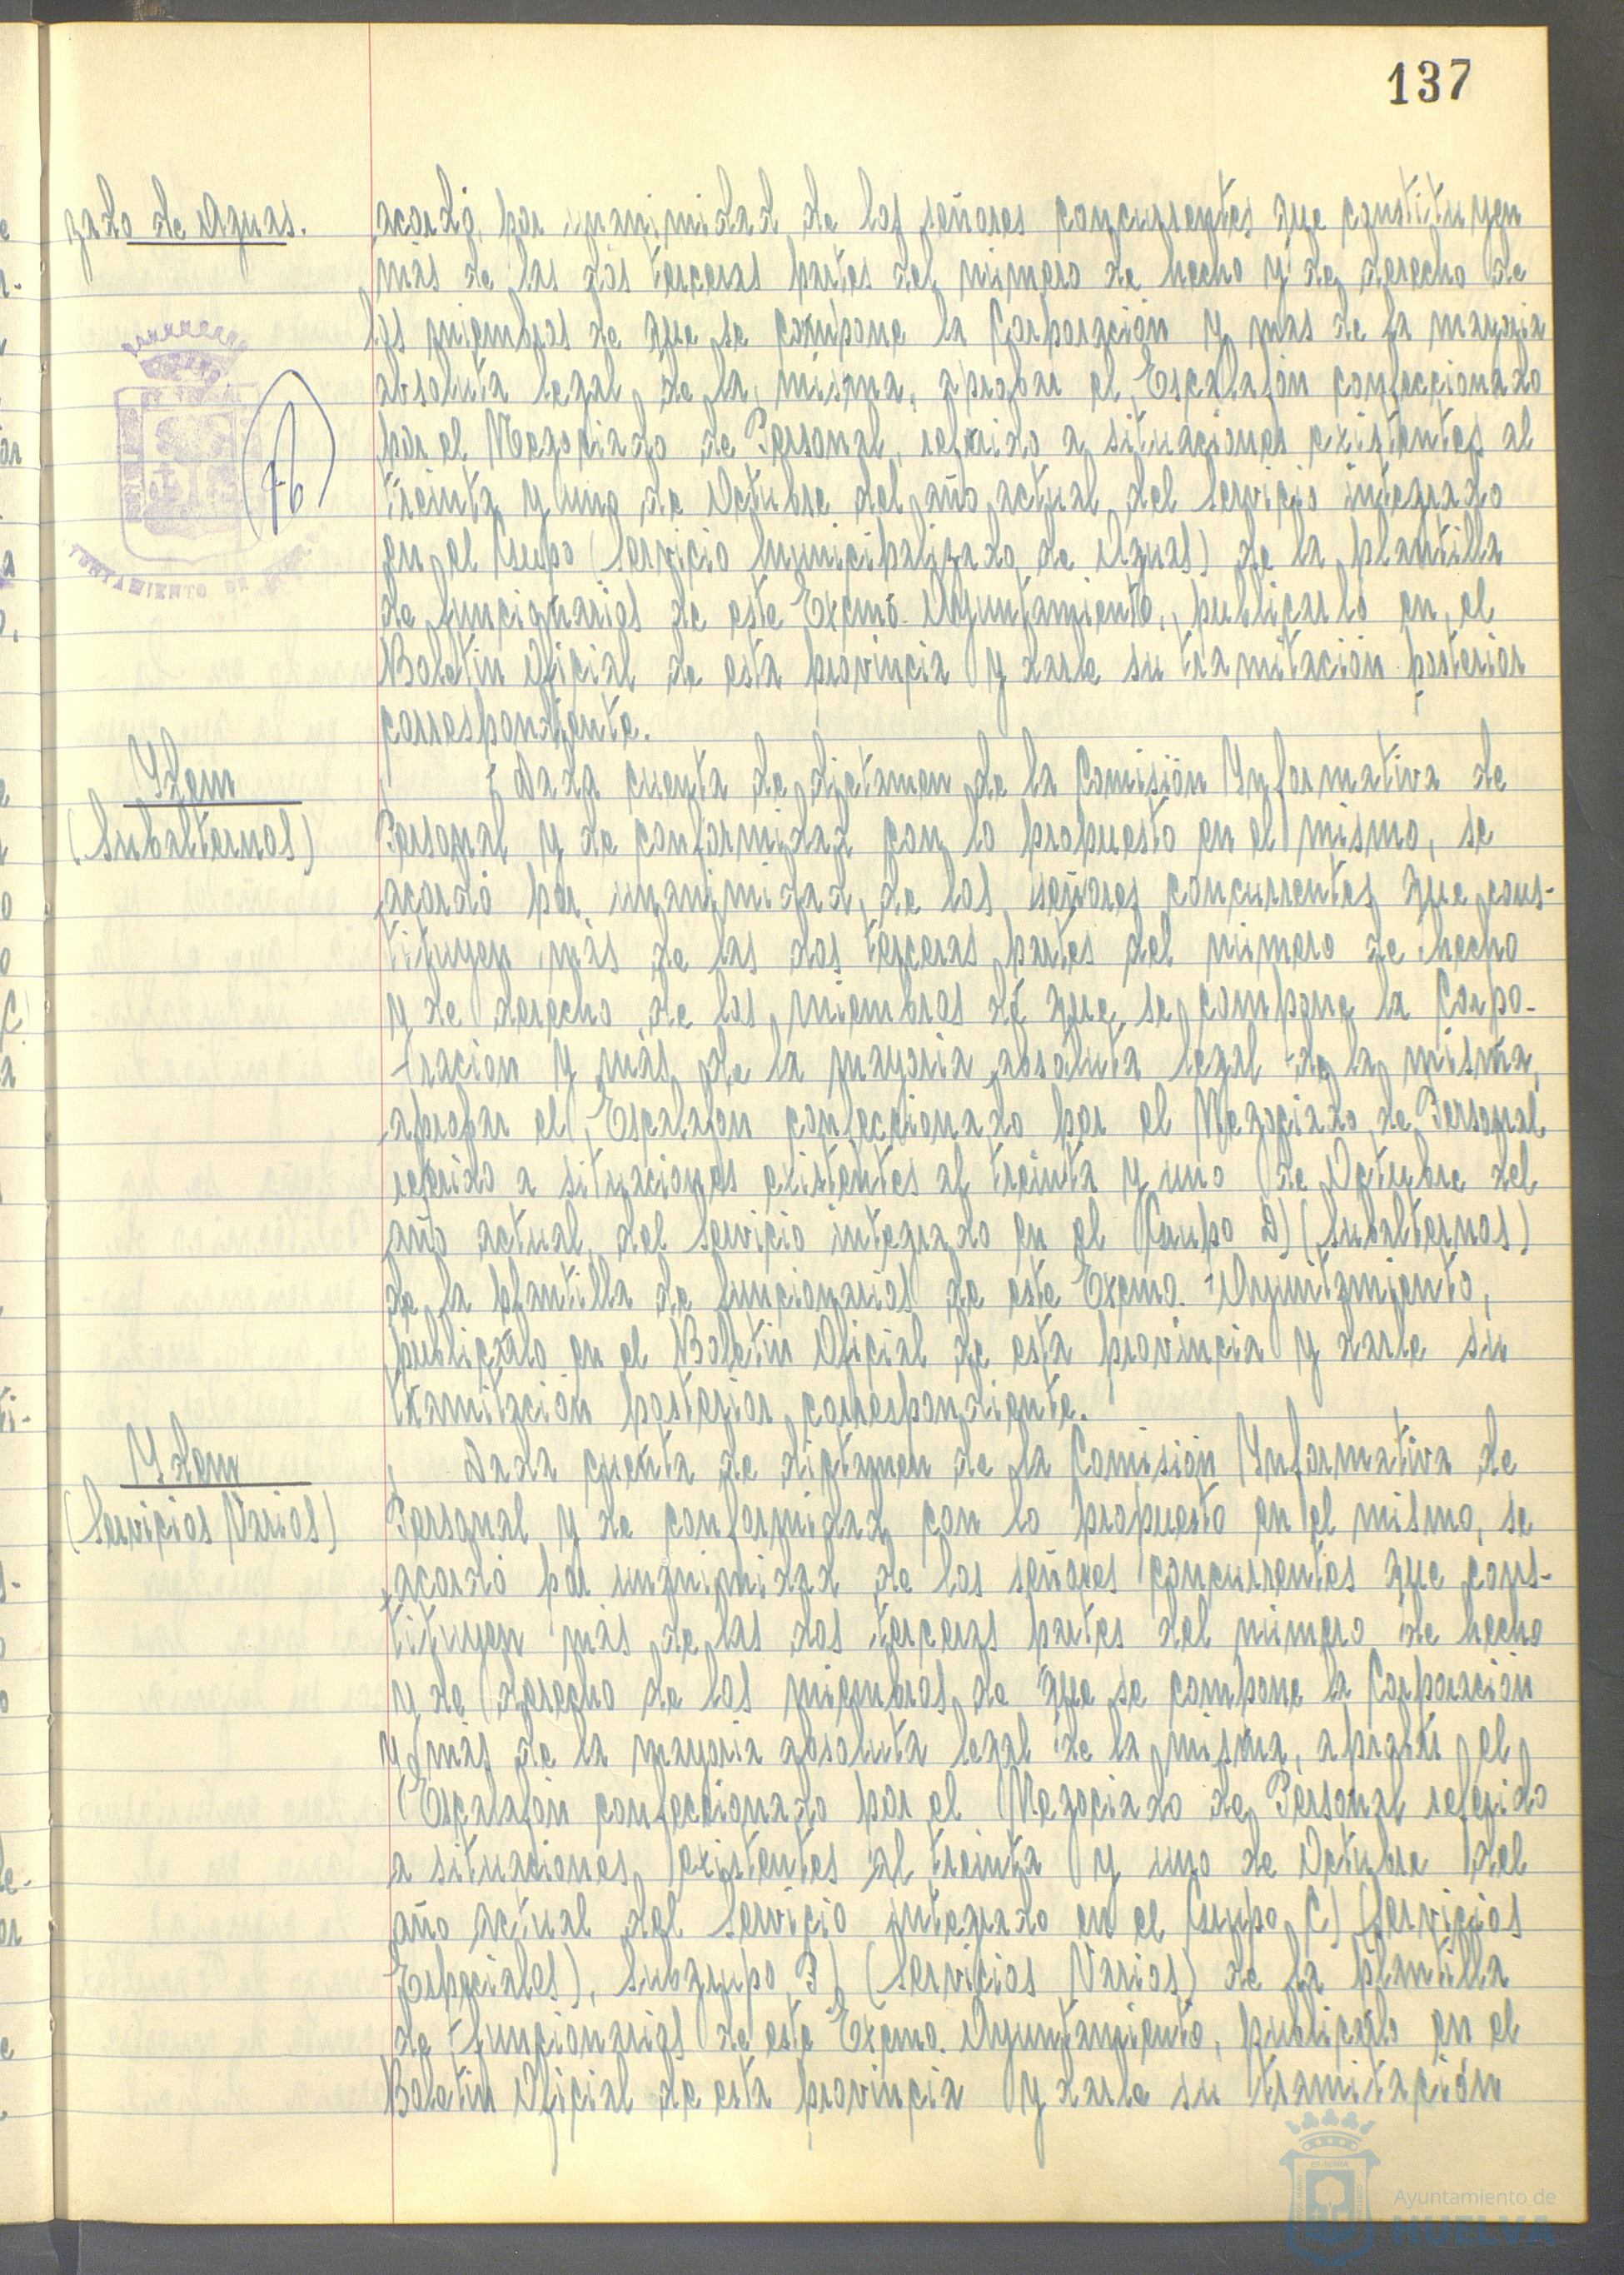 137
zado de Aguas.
acordó, por unanimidad de los señores concurrentes que constituyen
más de las dos terceras partes del número de hecho y de derecho de
los miembros de que se compone la Corporación y mas de la mayoria
absoluta legal de la misma, aprobar el Escalafón confeccionado
por el Negociado de Personal, referido a situaciones existentes al
treinta y uno de Octubre del año actual del Servicio integrado
en el Grupo (Servicio Municipalizado de Aguas) de la plantilla
de funcionarios de este Excmo. Ayuntamiento, publicarlo en el
Boletin Oficial de esta provincia y darle su tramitación posterior
correspondiente.
AYUNTAMIENTO DE
Ydem
(Subalternos)
Dada cuenta de dictamen de la Comisión Informativa de
Personal y de conformidad con lo propuesto en el mismo, se
acordó por unanimidad, de los señores concurrentes que cons-
tituyen más de las dos terceras partes del número de hecho
y de derecho de los miembros de que se compone la Corpo-
ración y más de la mayoria absoluta legal de la misma,
aprobar el Escalafón confeccionado por el Negociado de Personal
referido a situaciones existentes al treinta y uno de Octubre del
año actual, del Servicio integrado en el Grupo D) (Subalternos)
de la plantilla de funcionarios de este Excmo. Ayuntamiento,
publicarlo en el Boletin Oficial de esta provincia y darle su
tramitación posterior correspondiente.
Ydem
(Servicios Varios)
Dada cuenta de dictamen de la Comisión Informativa de
Personal y de conformidad con lo propuesto en el mismo, se
acordó por unanimidad de los señores concurrentes que cons-
tituyen más de las dos terceras partes del número de hecho
y de derecho de los miembros de que se compone la Corporación
y más de la mayoria absoluta legal de la misma, aprobar el
Escalafón confeccionado por el Negociado de Personal referido
a situaciones existentes al treinta y uno de Octubre del
año actual del Servicio integrado en el Grupo C) (Servicios
Especiales), Subgrupo B) (Servicios Varios) de la plantilla
de funcionarios de este Excmo. Ayuntamiento, publicarlo en el
Boletin Oficial de esta provincia y darle su tramitación
Ayuntamiento de
HUELVA